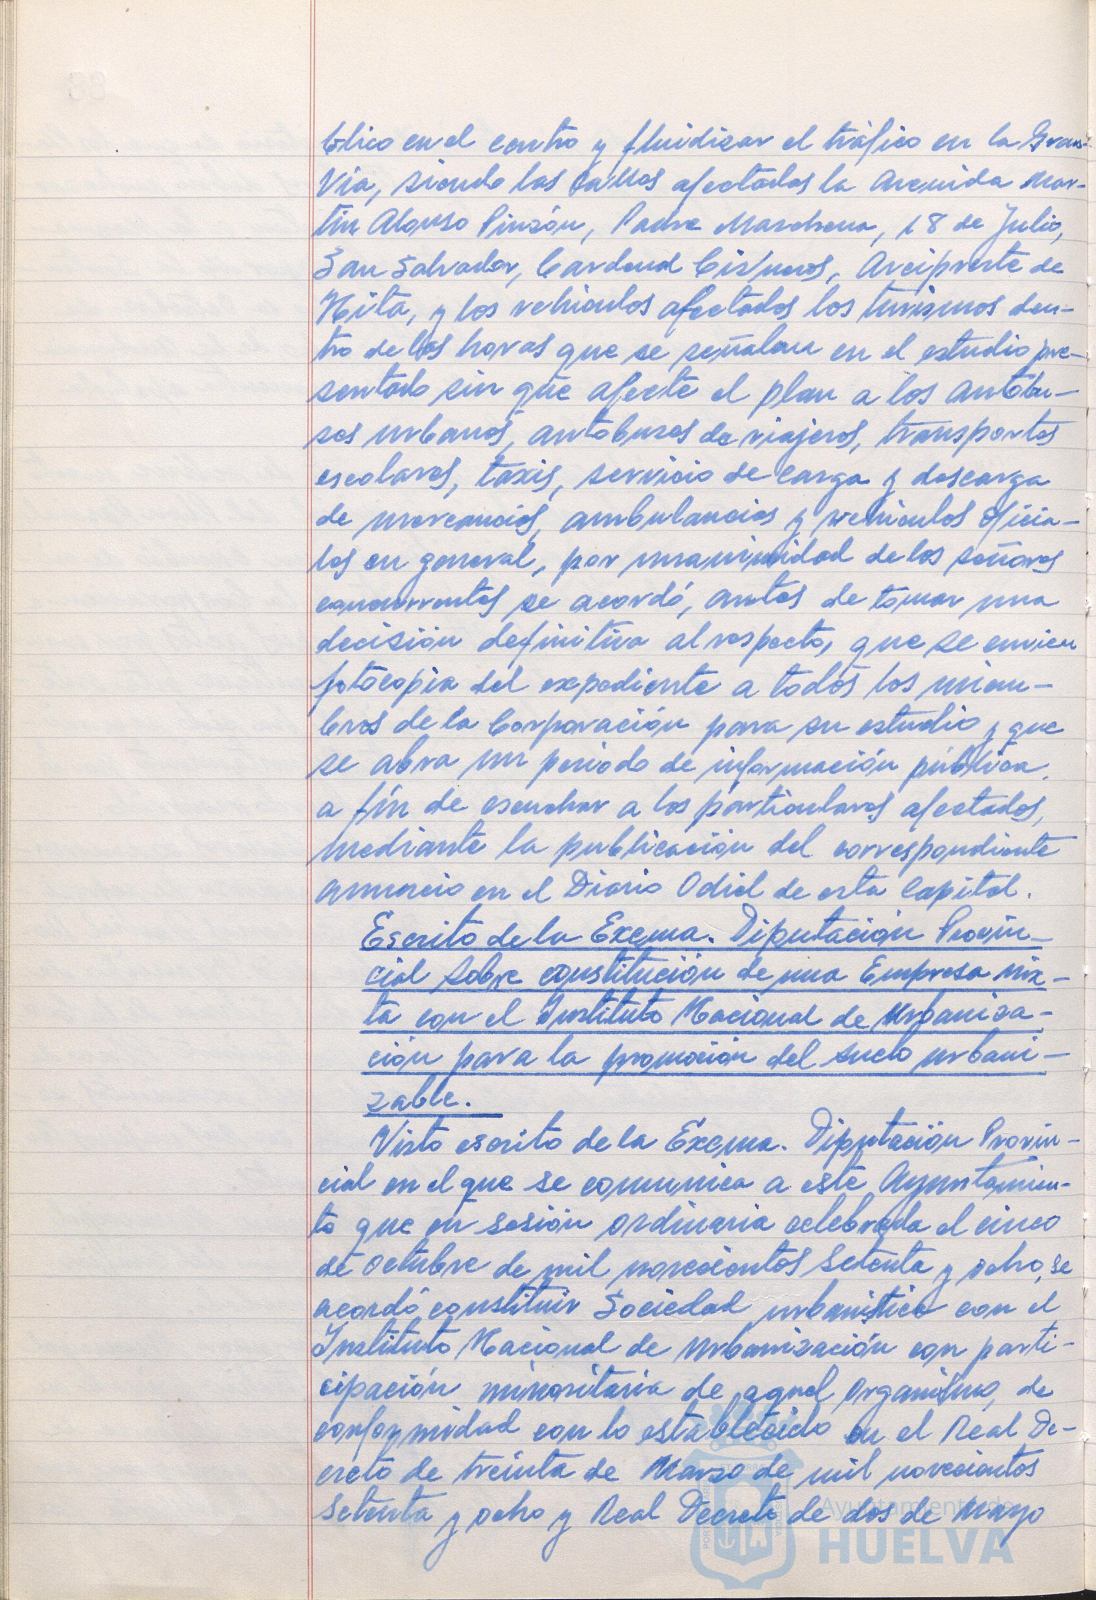 blico en el centro y fluidizar el tráfico en la Gran-
Vía, siendo las calles afectadas la Avenida Mar-
tín Alonso Pinzón, Padre Marchena, 18 de Julio,
San Salvador, Cardenal Cisneros, Arcipreste de
Hita, y los vehículos afectados los turismos den-
tro de las horas que se señalan en el estudio pre-
sentado sin que afecte el plan a los autobu-
ses urbanos, autobuses de viajeros, transportes
escolares, taxis, servicio de carga y descarga
de mercancías, ambulancias y vehículos oficia-
les en general, por unanimidad de los señores
concurrentes se acordó, antes de tomar una
decisión definitiva al respecto, que se envien
fotocopia del expediente a todos los miem-
bros de la Corporación para su estudio y que
se abra un periodo de información pública,
a fín de escuchar a los particulares afectados,
mediante la publicación del correspondiente
anuncio en el Diario Odiel de esta Capital.
Escrito de la Excma. Diputación Provin-
cial sobre constitución de una Empresa mix-
ta con el Instituto Nacional de Urbaniza-
ción para la promoción del suelo urbani-
zable.
Visto escrito de la Excma. Diputación Provin-
cial en el que se comunica a este Ayuntamien-
to que en sesión ordinaria celebrada el cinco
de Octubre de mil novecientos setenta y ocho, se
acordó constituir Sociedad urbanística con el
Instituto Nacional de Urbanización con parti-
cipación minoritaria de aquel Organismo, de
conformidad con lo establecido en el Real De-
creto de treinta de Marzo de mil novecientos
setenta y ocho y Real Decreto de dos de Mayo
Ayuntamiento de
HUELVA